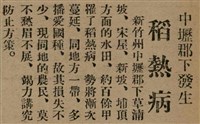 中壢郡下發生
稻熱病
新竹州中壢郡下草湳
坡、宋屋、新坡、埔頂
方面的水田、約百餘甲
罹了稻熱病、勢將漸次
蔓延、同地方一帶、多
播愛國種、故其損失不
少、現同地的農民、莫
不愁眉不展、竭力講究
防止方策。